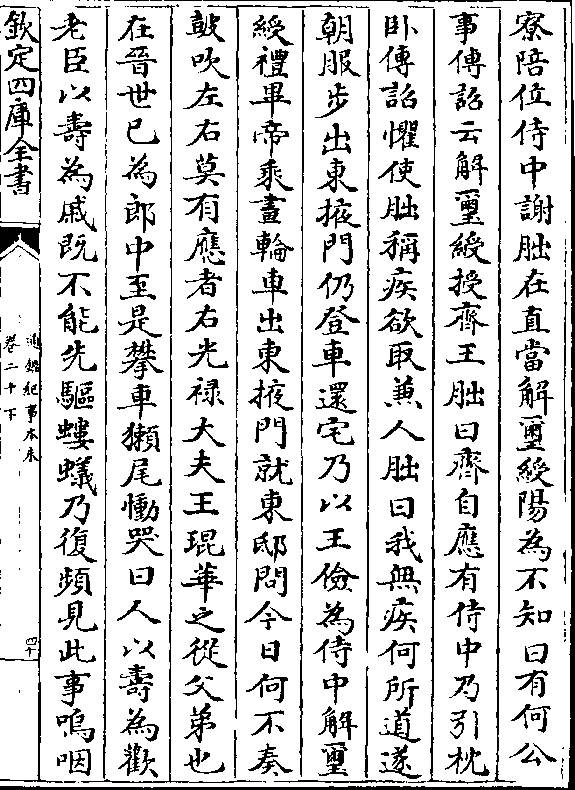 寮陪位侍中謝朏在直當解璽綬陽為不知曰有何公
事傳詔云解璽綬授齊王朏曰齊自應有侍中乃引枕
卧傳詔懼使朏稱疾欲取兼人朏曰我無疾何所道遂
朝服步出東掖門仍登車還宅乃以王儉為侍中解璽
綬禮畢帝乘畫輪車出東掖門就東邸問今日何不奏
皷吹左右莫有應者右光禄大夫王琨華之從父弟也
在晉世已為郎中至是攀車獺尾慟哭曰人以壽為歡
老臣以壽為戚既不能先驅螻蟻乃復頻見此事嗚咽
欽定四庫全書
通鑑紀事本末
卷二十下
四十